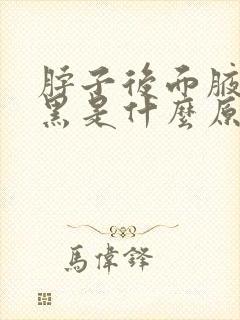 脖子後面腋
黑是什麼原
馬偉鋒